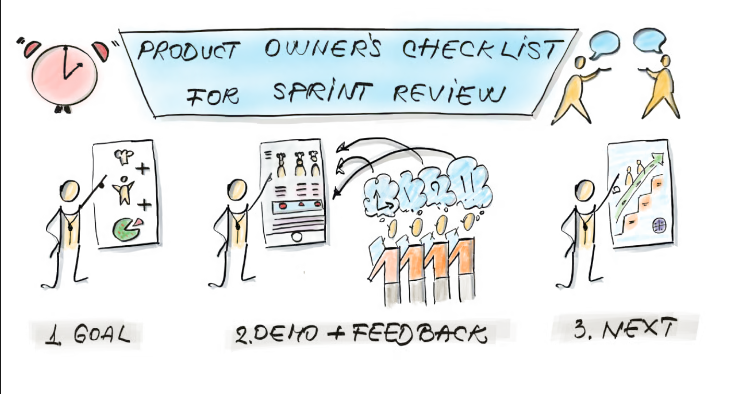 PRODUCT OWNER'S CHECKLIST
FOR SPRINT REVIEW
1 GOAL
2. DEMO + FEEDBACK
3. NEXT